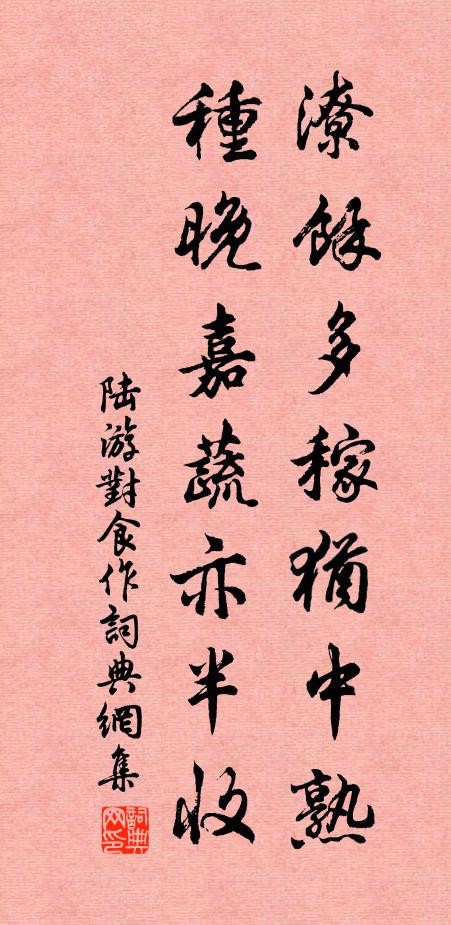 潦餘多稼猶中熟
種晚嘉蔬亦半收
陆游對食作詞典網集
詞典网印